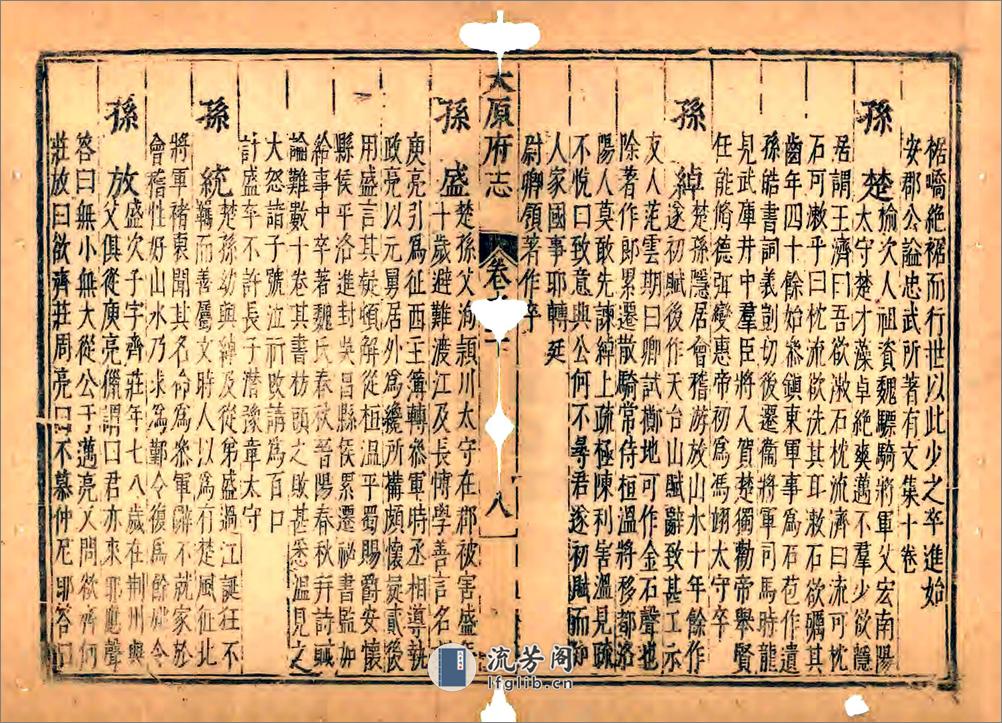 裾嶠絶裾而行世以此少之卒進始
安郡公謚忠武所著有文集十卷
孫楚榆次人祖資魏驃騎將軍父宏南陽
太守楚才藻卓絶爽邁不羣少欲隱
居謂王濟曰吾欲漱石枕流濟曰流可枕
石可漱乎曰枕流欲洗其耳漱石欲礪其
齒年四十餘始參鎮東軍事爲石苞作遺
孫皓書詞義剴切後遷衞將軍司馬時龍
見武庫井中羣臣將入賀楚獨勸帝舉賢
任能脩德弭變惠帝初爲馮翊太守卒
孫綽楚孫隱居會稽游放山水十年餘作
遂初賦後作天台山賦辭致甚工示
友人范雲期曰卿試擲地可作金石聲也
除著作郎累遷散騎常侍桓溫將移都洛
陽人莫敢先諫綽上疏極陳利害溫見疏
不悅曰致意興公何不尋君遂初賦而知
人家國事耶轉廷
尉卿領著作卒
太原府志
卷
八
孫盛楚孫父洵潁川太守在郡被害盛年
十歲避難渡江及長博學善言名
庾亮引爲征西主簿轉參軍時丞相導執
政亮以元舅居外爲纔所搆頗懷疑貳後
用盛言其疑頓解從桓溫平蜀賜爵安懷
縣侯平洛進封吳昌縣侯累遷祕書監加
給事中卒著魏氏春秋晉陽春秋并詩賦
論難數十卷其書枋頭之敗甚悉溫見之
大怒諸子號泣祈改請爲百口
計盛卒不許長子潛豫章太守
孫統楚孫幼與綽及從弟盛過江誕狂不
羈而善屬文時人以爲有楚風征北
將軍褚裒聞其名命爲參軍辭不就家於
會稽性好山水乃求爲鄞令復爲餘姚令
孫放盛次子字齊莊年七八歲在荆州與
父俱從庾亮獵謂曰君亦來耶應聲
答曰無小無大從公于邁亮又問欲齊何
莊放曰欲齊莊周亮曰不慕仲尼耶答曰
流芳阁
lfglib.cn